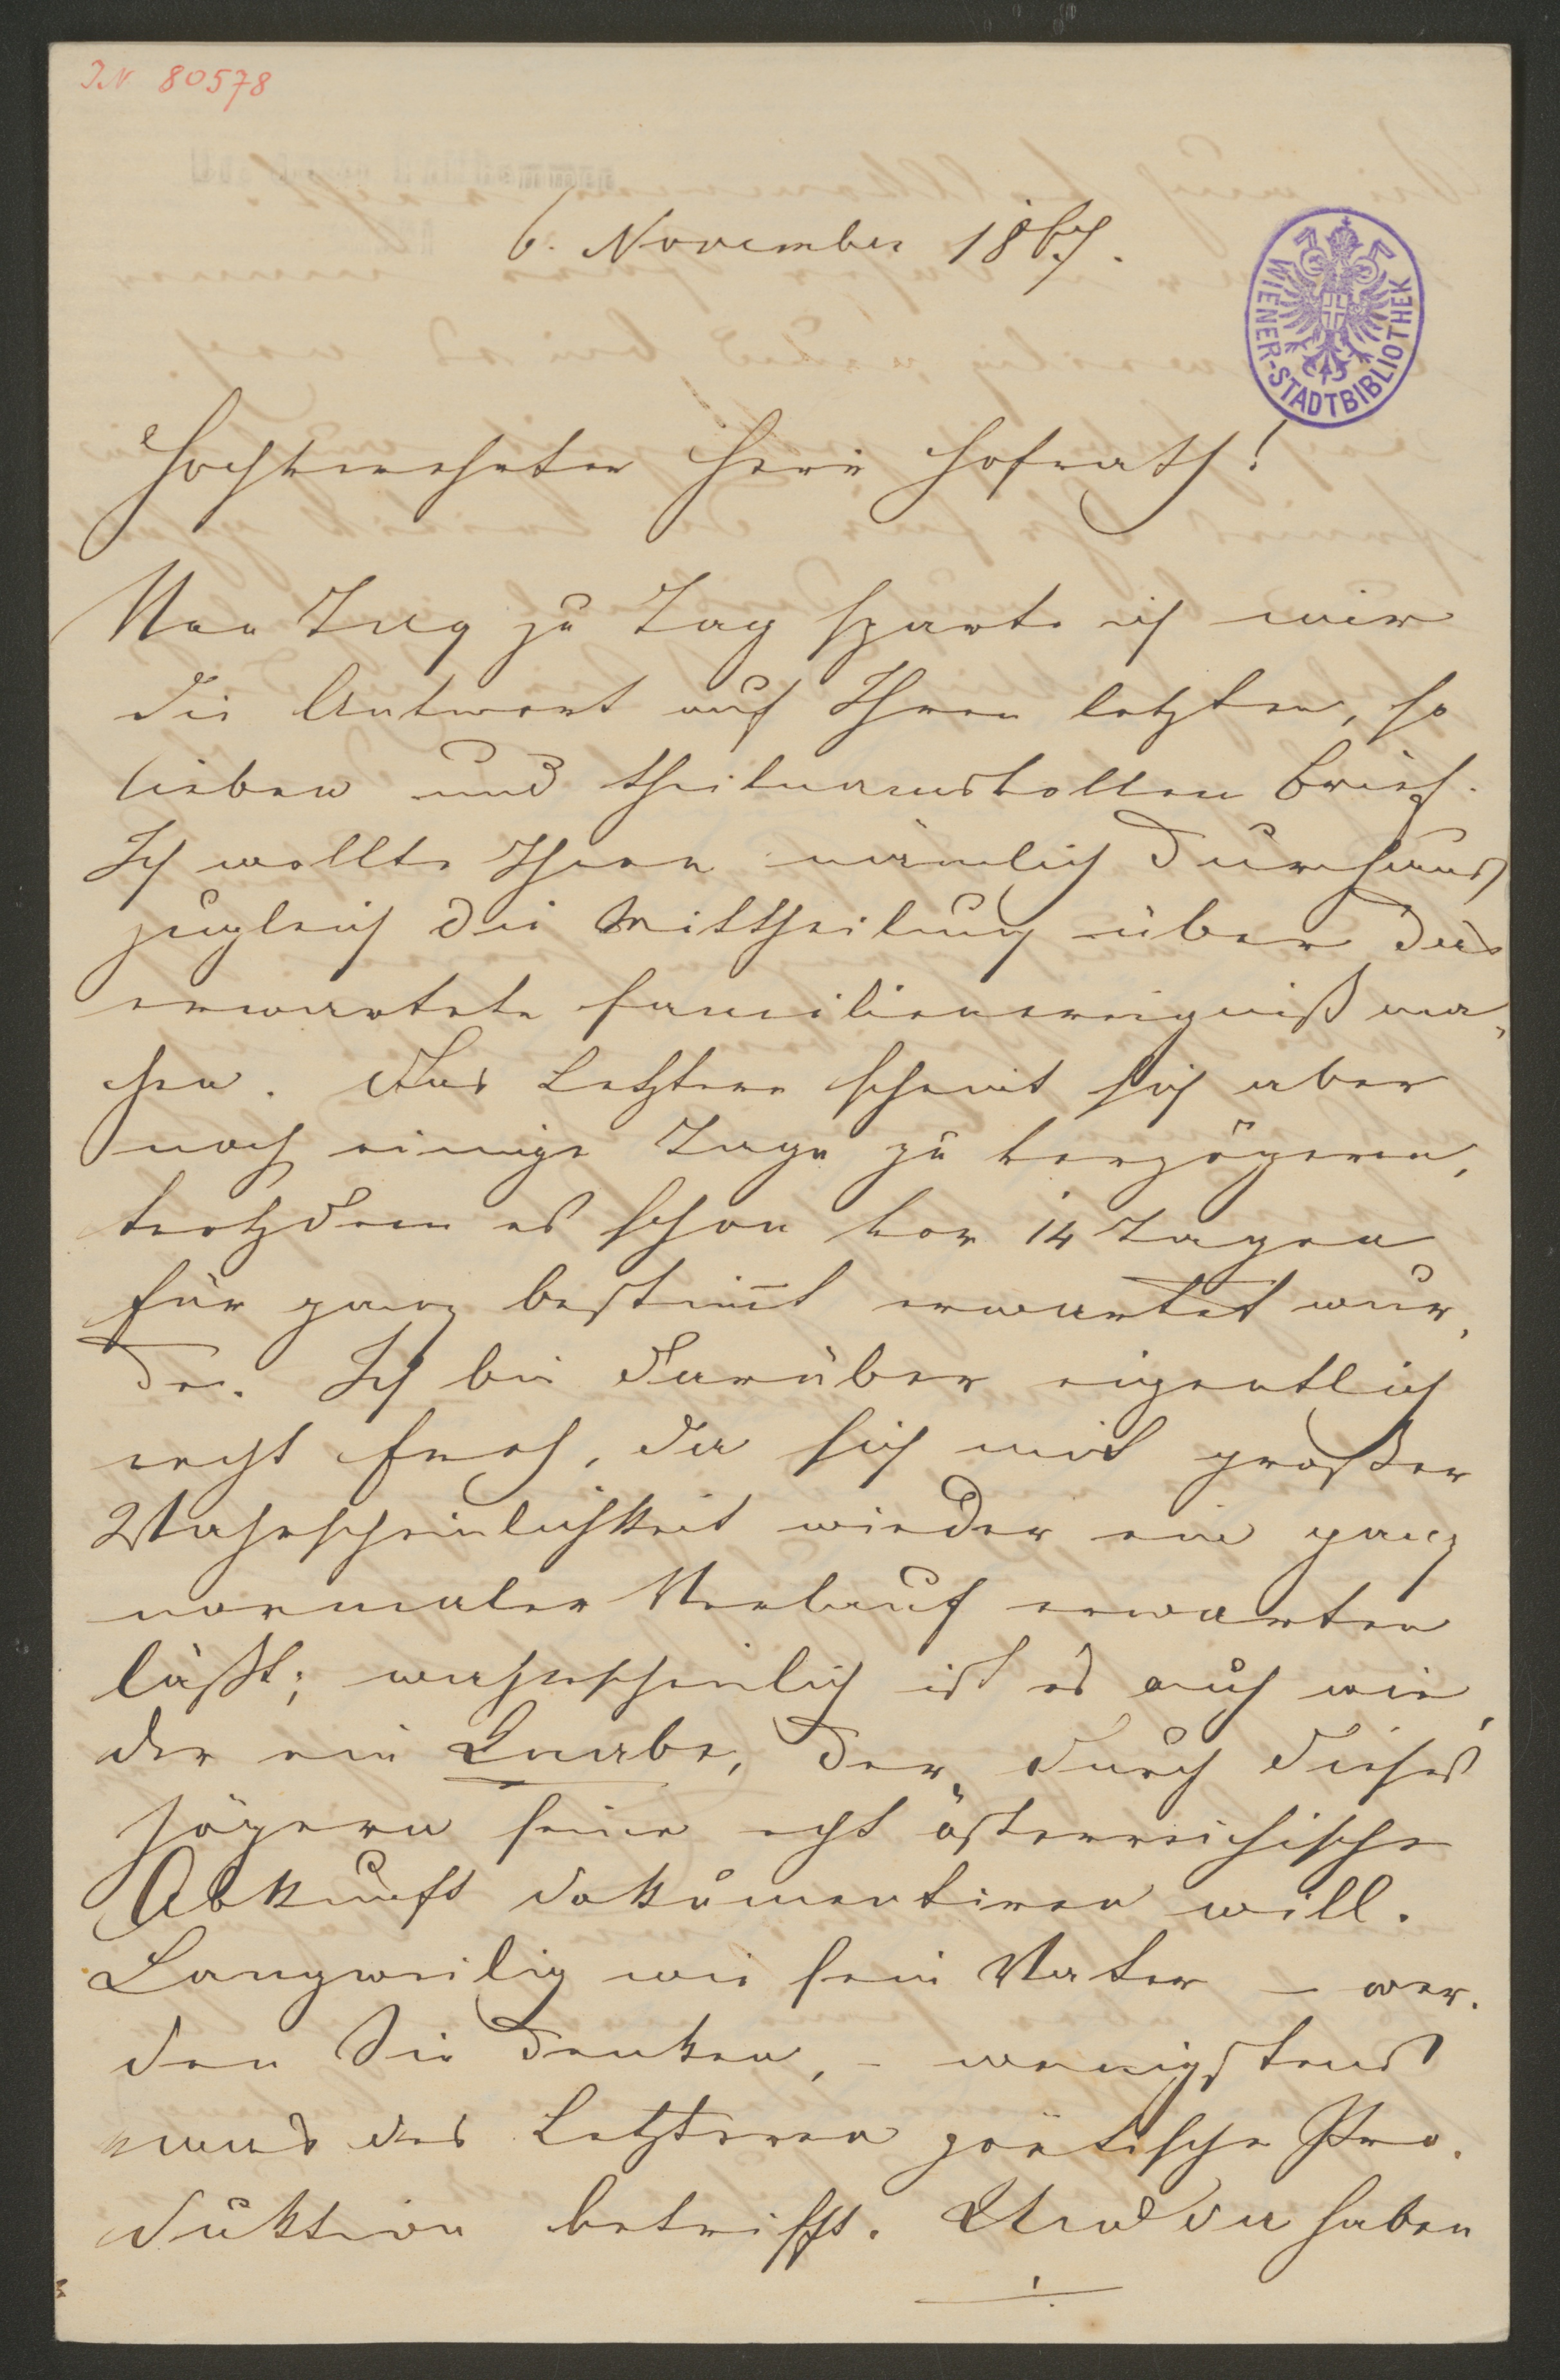 IN 80578
6. November 1867.
WIENER-STADTBIBLIOTHEK
Hochverehrter Herr Hofrath!
Von Tag zu Tag sparte ich mir
die Antwort auf Ihren letzten, so
lieben und theilnamsvollen Brief.
Ich wollte Ihnen nämlich durchaus
zugleich die Mittheilung über das
erwartete Familienereigniß ma-
chen. Das Letztere scheint sich aber
noch einige Tage zu verzögern,
trotzdem es schon vor 14 Tagen
für ganz bestim̅t erwartet wur-
de. Ich bin darüber eigentlich
recht froh, da sich mit großer
Wahrscheinlichkeit wieder ein ganz
normaler Verlauf erwarten
läßt; wahrscheinlich ist es auch wie-
der ein Knabe, der durch dieses
Zögern seine echt österreichische
Abkunft dokumentiren will.
Langweilig wie sein Vater – wer-
den Sie denken, – wenigstens
was des Letzteren poetische Pro-
duktion betrifft. Und da haben